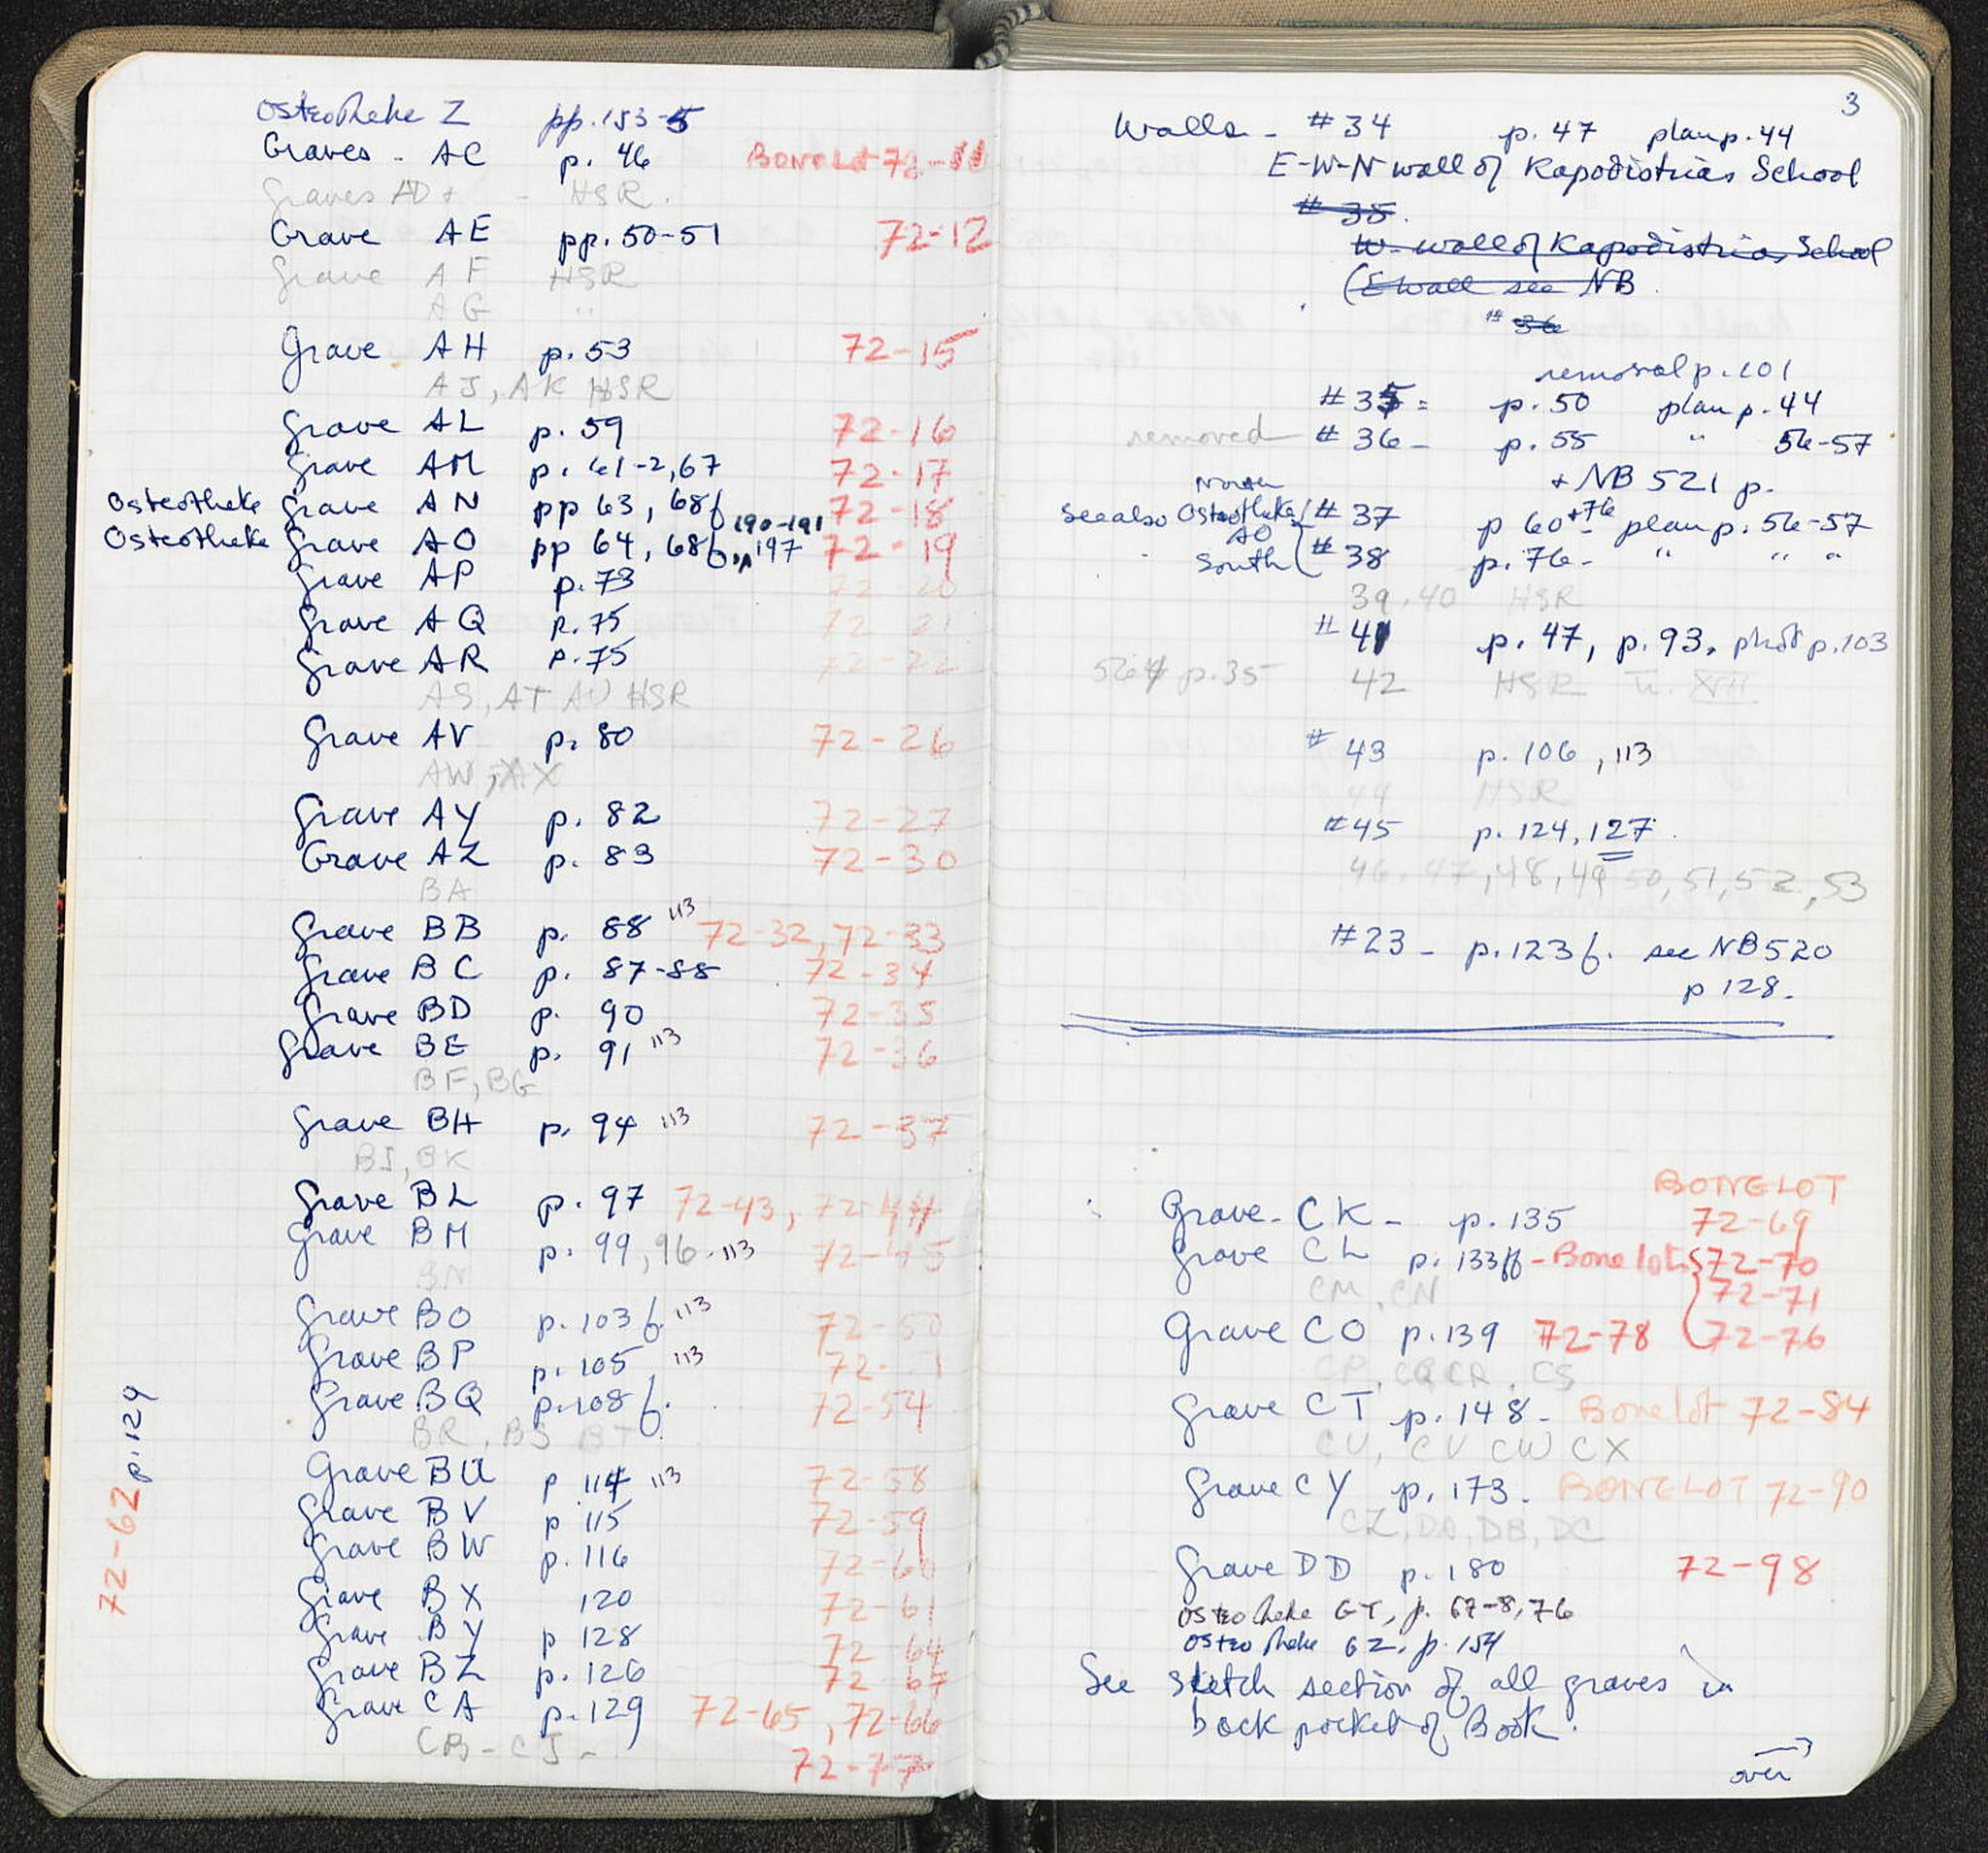 Osteotheke Z pp. 153-5
Graves - AC p. 46 BONE Lot 72-11
Graves AD + - HSR.
Grave AE pp. 50-51 72-12
Grave AF HSR
AG "
Grave AH p. 53 72-15
AJ, AK HSR
Grave AL p. 59 72-16
Grave AM p. 61-2, 67 72-17
Osteotheke Grave AN pp 63, 68f 72-18
190-191
Osteotheke Grave AO pp 64, 68f, 197 72-19
Grave AP p. 73 72 20
Grave AQ p. 75 72 21
Grave AR p. 75 72-22
AS, AT AU HSR
Grave AV p. 80 72-26
AW, AX
Grave AY p. 82 72-27
Grave AZ p. 83 72-30
BA
Grave BB p. 88 113 72-32, 72-33
Grave BC p. 87-88 72-34
Grave BD p. 90 72-35
Grave BE p. 91 113 72-36
BF, BG
Grave BH p. 94 113 72-37
BI, BK
Grave BL p. 97 72-43, 72-44
Grave BM p. 99, 96. 113 72-45
BN
Grave BO p. 103 f. 113 72-50
Grave BP p. 105 113 72- 1
Grave BQ p. 108 f. 72-54
BR, BS BT
Grave BU p 114 113 72-58
Grave BV p 115 72-59
Grave BW p. 116 72-60
Grave BX 120 72-61
Grave BY p 128 72-64
Grave BZ p. 126 72-67
Grave CA p. 129 72-65, 72-66
CB - CJ - 72-77
72-62 p. 129
3
Walls - # 34 p. 47 plan p. 44
E-W-N wall of Kapodistrias School
# 35.
W. wall of Kapodistrias School
(E wall see NB
# 36
removal p. 101
# 35 = p. 50 plan p. 44
removed # 36 - p. 55 " 56-57
+ NB 521 p.
North
See also Osteotheke # 37 p 60 +76 - plan p. 56-57
AO
South # 38 p. 76 - " " "
39, 40 HSR
# 41 p. 47, p. 93, phot p. 103
564 p. 35 42 HSR
# 43 p. 106, 113
44 HSR
#45 p. 124, 127.
46, 47, 48, 49 50, 51, 52, 53
#23 - p. 123 f. see NB 520
p 128.
BONE LOT
Grave - CK - p. 135 72-69
Grave CL p. 133ff - Bone lot 72-70
CM, CN 72-71
Grave CO p. 139 72-78 72-76
CP, CQ CR, CS
Grave CT p. 148 - Bone lot 72-84
CU, CV CW CX
Grave CY p. 173 - BONE LOT 72-90
CZ, DA, DB, DC
Grave DD p. 180 72-98
Osteotheke GT, p. 67-8, 76
Osteotheke GZ, p. 154
See sketch section of all graves in
back pocket of Book.
over